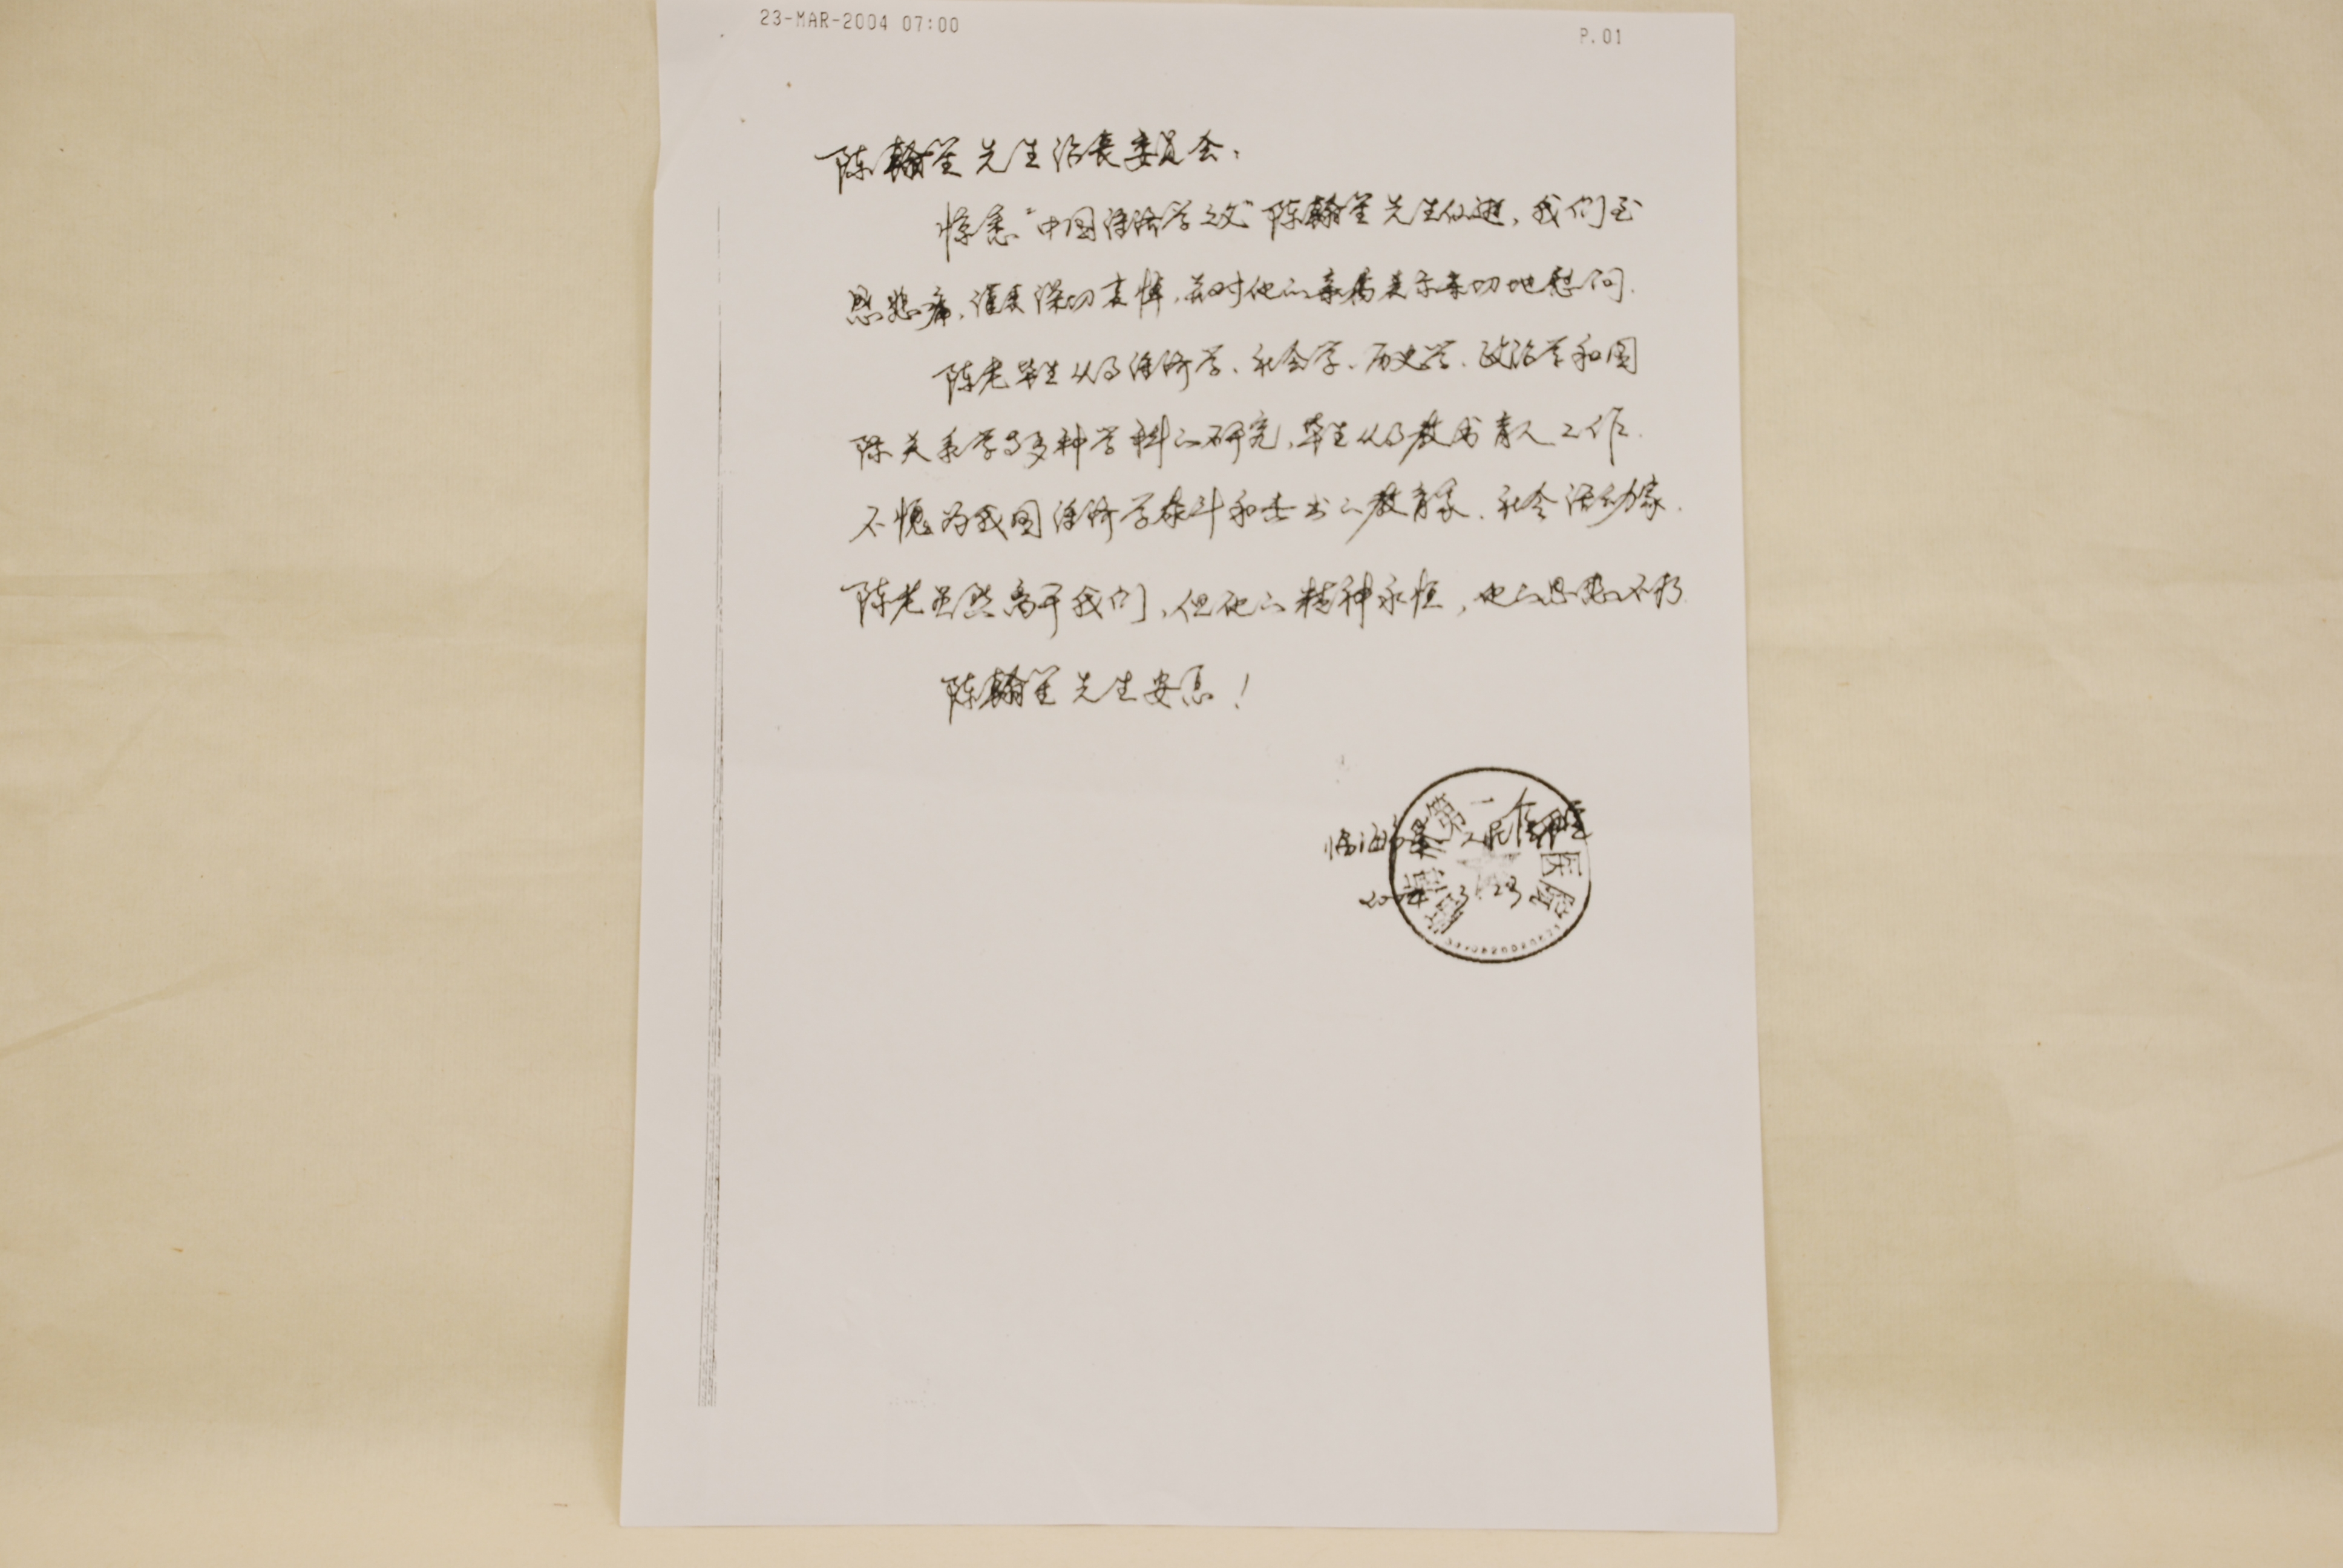 23-MAR-2004 07:00 P.01
陈翰笙先生治丧委员会:
惊悉“中国经济学之父”陈翰笙先生仙逝,我们至
恩悲痛,谨表深切哀悼,并对他的亲属表示亲切地慰问.
陈老毕生从事经济学、社会学、历史学、政治学和国
际关系学等多种学科的研究,毕生从事教书育人工作.
不愧为我国经济学泰斗和杰出的教育家、社会活动家.
陈老虽然离开我们,但他的精神永恒,他的思想不朽.
陈翰笙先生安息!
第一人民医院
2004.3.23